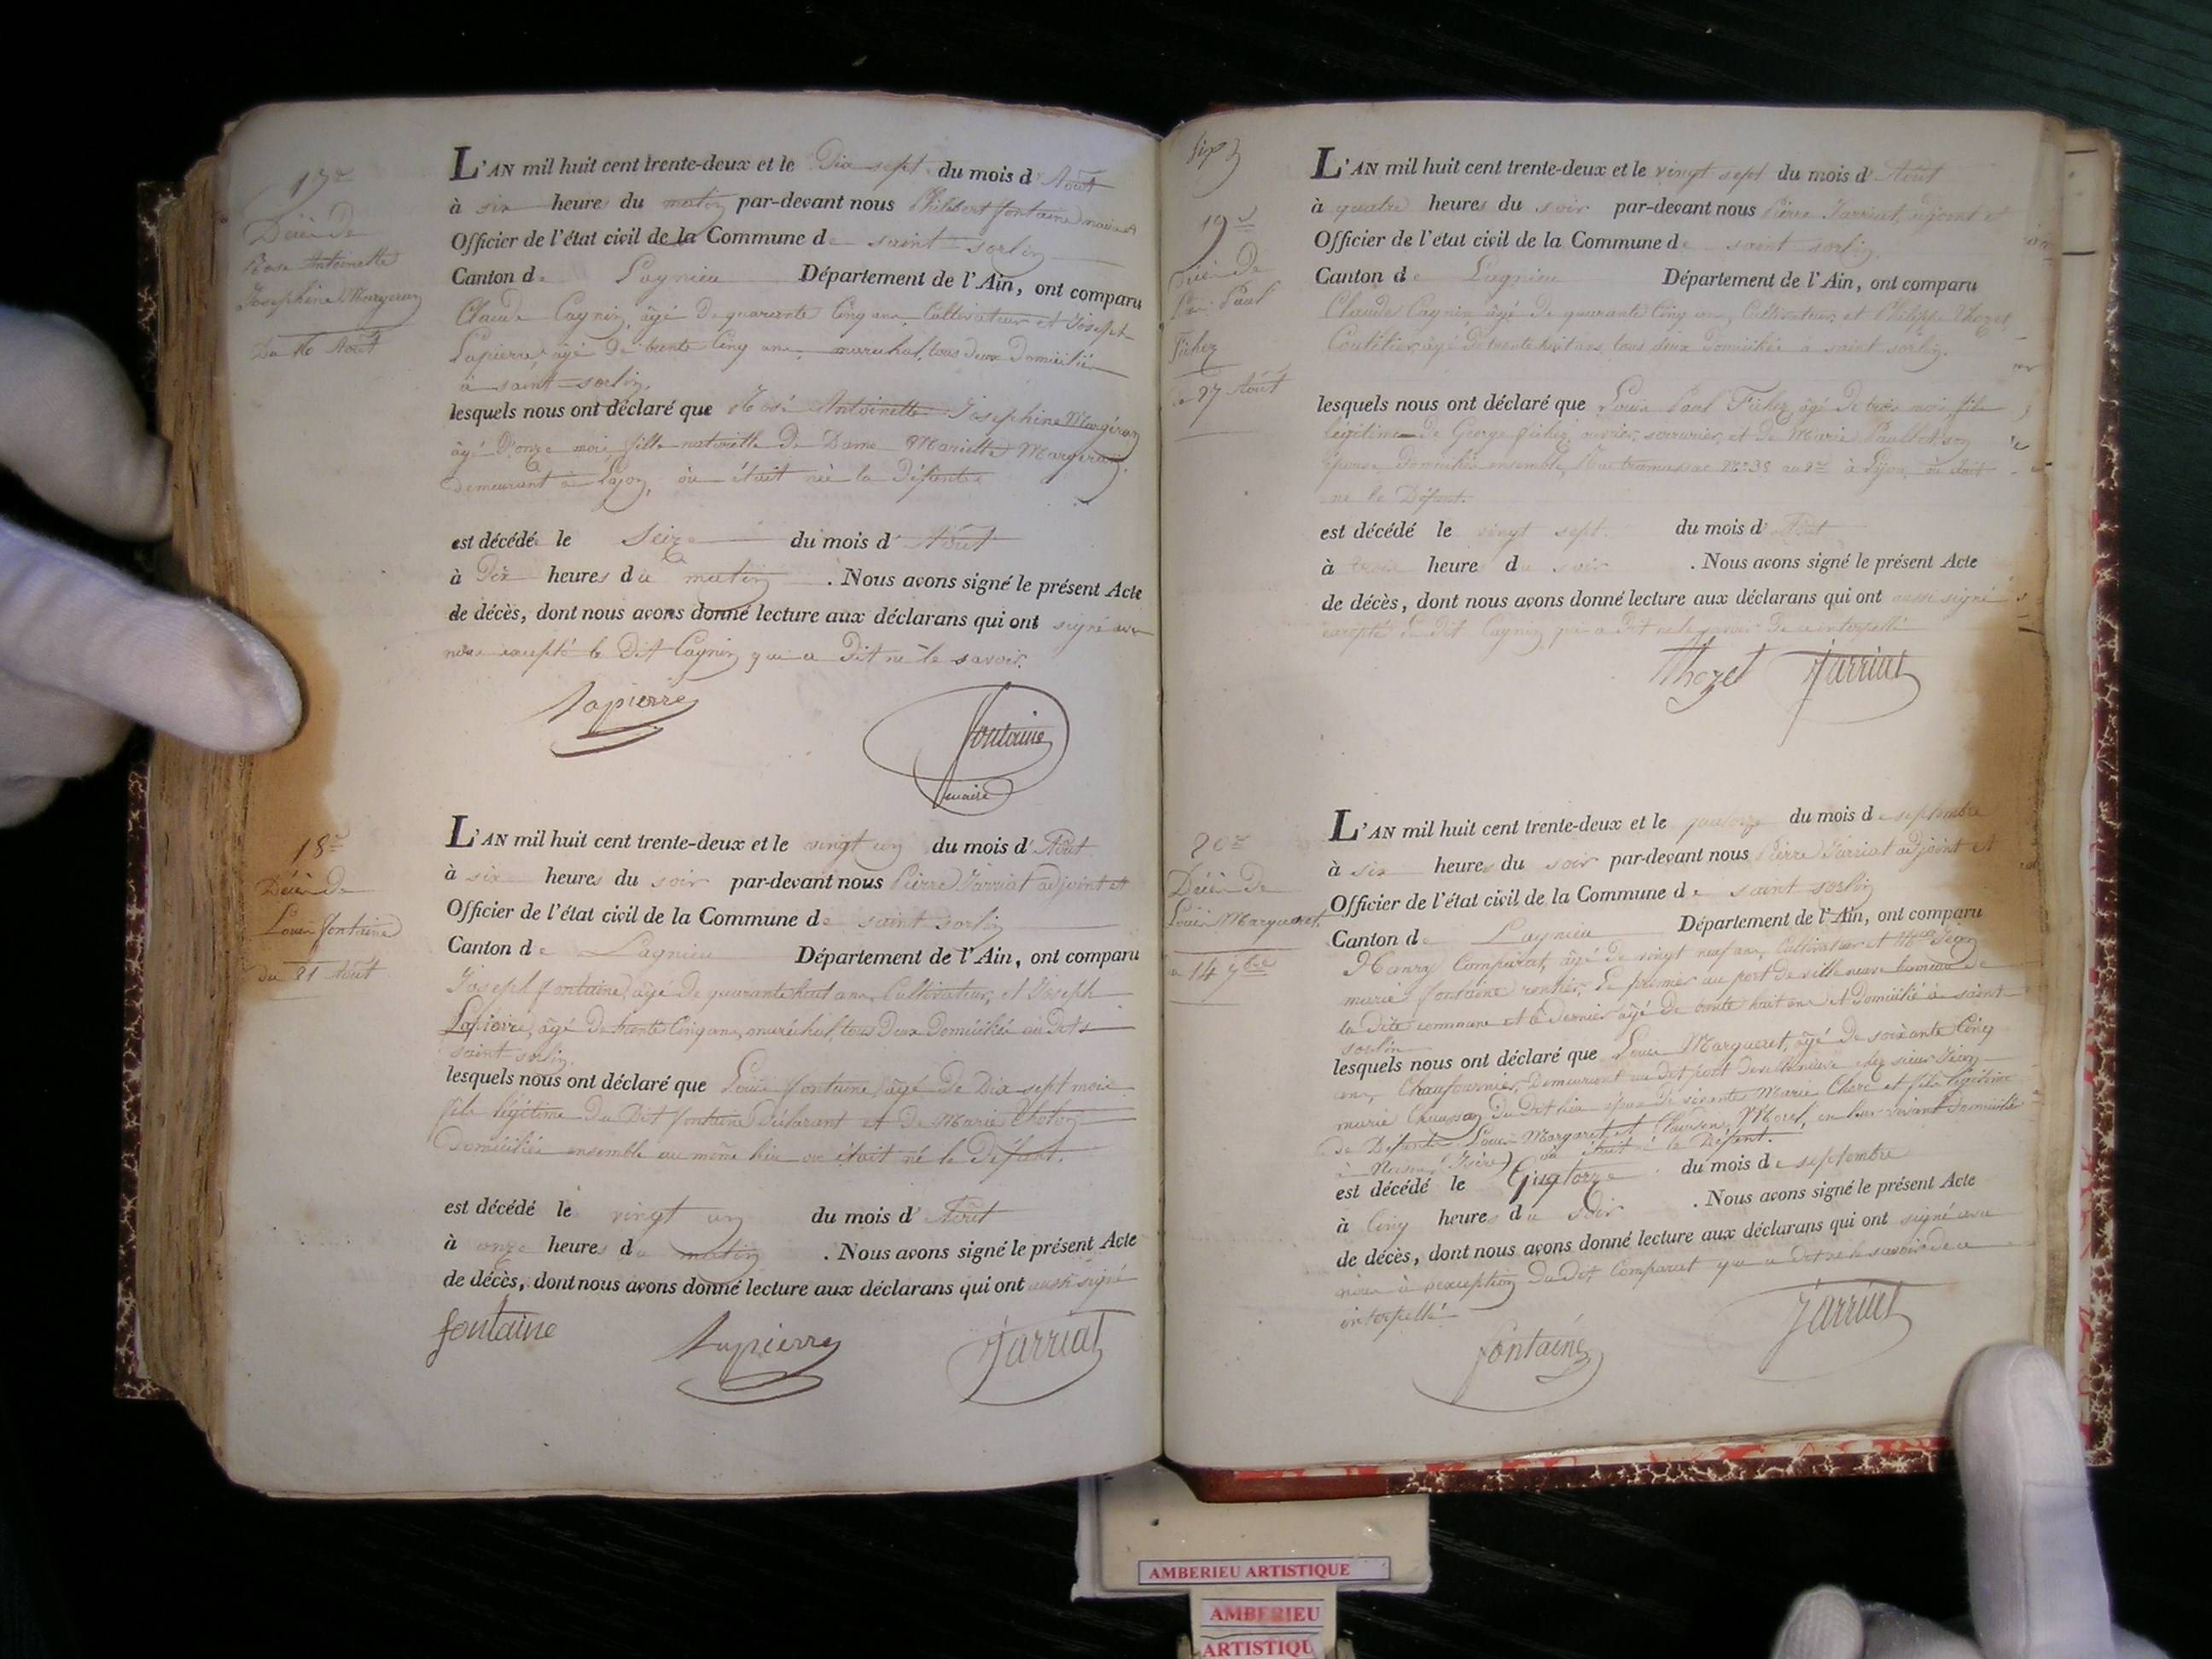 17e
Décès de
Rose Antoinette
Josephine Margeron
Du 16 Août
L'AN mil huit cent trente-deux et le Dix sept du mois d'Août
à six heures du matin par-devant nous Philibert fontaine maire et
Officier de l'état civil de la Commune de saint-sorlin
Canton de Lagnieu Département de l'Ain, ont comparu
Claude Cagnin, âgé de quarante Cinq ans, Cultivateur et Joseph
Lapierre âgé de trente Cinq ans, maréchal, tous deux Domiciliés
à saint-sorlin.
lesquels nous ont déclaré que Rose Antoinette Josephine Margeron
âgé D'onze mois, fille naturelle de Dame Mariette Margeron
demeurant à Lyon, où était née la Défunte
est décédé le Seize du mois d'Août
à Dix heures du matin. Nous avons signé le présent Acte
de décès, dont nous avons donné lecture aux déclarans qui ont signé avec
nous excepté le dit Cagnin qui a Dit ne le savoir.
Lapierre
fontaine
maire
18e
Décès de
Louis fontaine
du 21 Août
L'AN mil huit cent trente-deux et le vingt un du mois d'Août
à six heures du soir par-devant nous Pierre Jarriat adjoint et
Officier de l'état civil de la Commune de saint sorlin
Canton de Lagnieu Département de l'Ain, ont comparu
Joseph fontaine, âgé de quarante huit ans, Cultivateur, et Joseph
Lapierre, âgé de trente Cinq ans, maréchal, tous Deux Domiciliés au Dit
saint sorlin.
lesquels nous ont déclaré que Louis fontaine âgé de Dix sept mois
fils légitime du Dit fontaine Déclarant et de Marie
Domiciliés ensemble au même lieu ou était né le Défunt.
est décédé le vingt un du mois d'Août
à onze heures du matin. Nous avons signé le présent Acte
de décès, dont nous avons donné lecture aux déclarans qui ont aussi signé
fontaine Lapierre Jarriat
19e
Décès de
Paul
Fichez
27 Août
L'AN mil huit cent trente-deux et le vingt sept du mois d'Août
à quatre heures du soir par-devant nous Pierre Jarriat, adjoint et
Officier de l'état civil de la Commune de saint-sorlin
Canton de Lagnieu Département de l'Ain, ont comparu
Claude Cagnin âgé de quarante Cinq ans, Cultivateur, et Philippe Thozet
âgé de trente huit ans, tous deux Domiciliés à saint sorlin.
lesquels nous ont déclaré que Louis Paul Fichez, âgé de trois mois, fils
légitime de George fichez, ouvrier, serrurier, et de Marie son
épouse, Domiciliés ensemble, Rue tramassac N° 38 au 2e à Lyon, où était
né le Défunt.
est décédé le vingt sept du mois d'Août
à trois heures du soir. Nous avons signé le présent Acte
de décès, dont nous avons donné lecture aux déclarans qui ont aussi signé
excepté le dit Cagnin qui a Dit ne le savoir De ce interpellé
Thozet Jarriat
20e
Décès de
Louis Margueret
14 7bre
L'AN mil huit cent trente-deux et le quatorze du mois de septembre
à six heures du soir par-devant nous Pierre Jarriat adjoint et
Officier de l'état civil de la Commune de saint sorlin
Canton de Lagnieu Département de l'Ain, ont comparu
Henry Comparat, âgé de vingt neuf ans, Cultivateur et Jean
marie fontaine rentier, le premier au port de villeneuve hameau de
la dite commune et le dernier âgé de trente huit ans et Domicilié à saint
sorlin
lesquels nous ont déclaré que Louis Margueret, âgé de soixante Cinq
ans, Chaufournier, Demeurant au dit port de villeneuve chez sieur Jean
marie du Dit lieu époux de vivante Marie Clerc et fils légitime
de Défunts Louis Margueret et Claudine Morel, en leur vivant Domiciliés
à (Isère) où était né le Défunt.
est décédé le Quatorze du mois de septembre
à Cinq heures du soir. Nous avons signé le présent Acte
de décès, dont nous avons donné lecture aux déclarans qui ont signé avec
nous à l'exception du Dit Comparat qui a dit ne le savoir de ce
interpellé
fontaine Jarriat
AMBERIEU ARTISTIQUE
AMBERIEU
ARTISTIQU